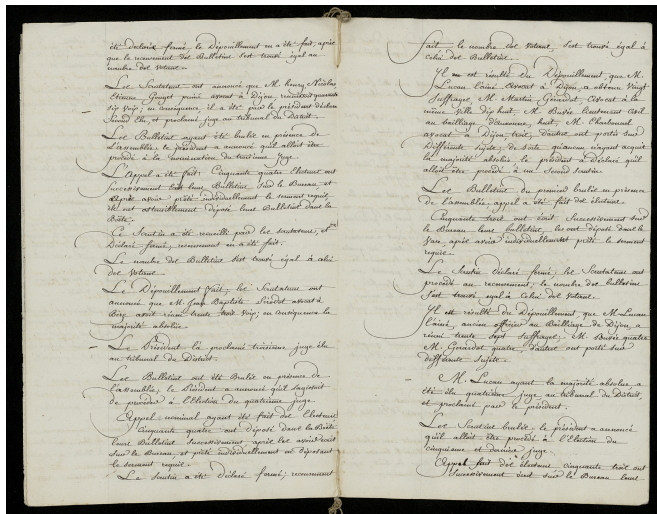 été déclaré fermé, le Dépouillement en a été fait, après
que le recensement des Bulletins s'est trouvé égal au
nombre des Votans.
Les Scrutateurs ont annoncé que M. henry Nicolas
Etienne avocat à Dijon,
Six Voix; en conséquence, il a été par le président déclaré
Second élu, et proclamé juge au tribunal du District.
Les Bulletins ayant été brulés en présence de
l'assemblée, le président a annoncé qu'il alloit être
procédé à la nomination du troisieme Juge.
L'Appel a été fait. Cinquante quatre Electeurs ont
successivement leurs Bulletins sur le Bureau, et
après avoir prêté individuellement le serment requis,
ont déposé leurs Bulletins dans la
Boëte.
Ce Scrutin a été recueilli par les scrutateurs, et
Déclaré fermé, recensement en a été fait.
Le nombre des Bulletins s'est trouvé égal à celui
des Votans.
Le Dépouillement fait, les Scrutateurs ont
annoncé que M. Jean Baptiste avocat à
avoit réuni trente trois Voix; en conséquence la
majorité absolue.
Le Président l'a proclamé troisieme juge élu
au tribunal du District.
Les Bulletins ont été Brulés en présence de
l'assemblée, le Président a annoncé qu'il s'agissoit
de procéder à l'Election du quatrieme juge
Appel nominal ayant été fait des Electeurs
Cinquante quatre ont déposé dans la Boëte
leurs Bulletins successivement, après les avoir écrit
sur le Bureau, et prêté individuellement en déposant
le serment requis.
Le Scrutin a été déclaré fermé; recensement
fait, le nombre des Votans, s'est trouvé égal à
celui des Bulletins.
Il est résulté du Dépouillement, que M.
Lucan l'ainé avocat à Dijon, a obtenu Vingt
Suffrages, M. Martin Girardot avocat à la
même Ville dix huit, M. lieutenant
au bailliage d'auxonne, huit; M. Charbonnel
avocat à Dijon, trois, d'autres ont portés sur
Différents Sujets; de sorte qu'aucun n'ayant acquit
la majorité absolue, le président a Déclaré qu'il
alloit être procédé à un Second Scrutin.
Les Bulletins du premier brulés en présence
de l'assemblée, appel a été fait des électeurs.
Cinquante trois ont écrit Successivement sur
le Bureau leurs bulletins, les ont déposé dans le
Vase, après avoir individuellement prêté le serment
requis.
Le Scrutin déclaré fermé, les Scrutateurs ont
procédé au recensement; le nombre des bulletins
s'est trouvé égal à Celui des Votans.
Il est résulté du Dépouillement, que M. Lucan
l'ainé, ancien officier au Bailliage de Dijon, a
réuni trente sept Suffrages; M. quatre
M. Girardot quatre d'autres ont portés sur
differents Sujets.
M. Lucan ayant la majorité absolue a
été élu quatrieme juge au tribunal du District,
et proclamé par le président.
Les Scrutins brulés, le président a annoncé
qu'il alloit être procédé à l'Election du
cinquieme et dernier juge.
Appel fait des électeurs, cinquante trois ont
Successivement écrit sur le Bureau leurs